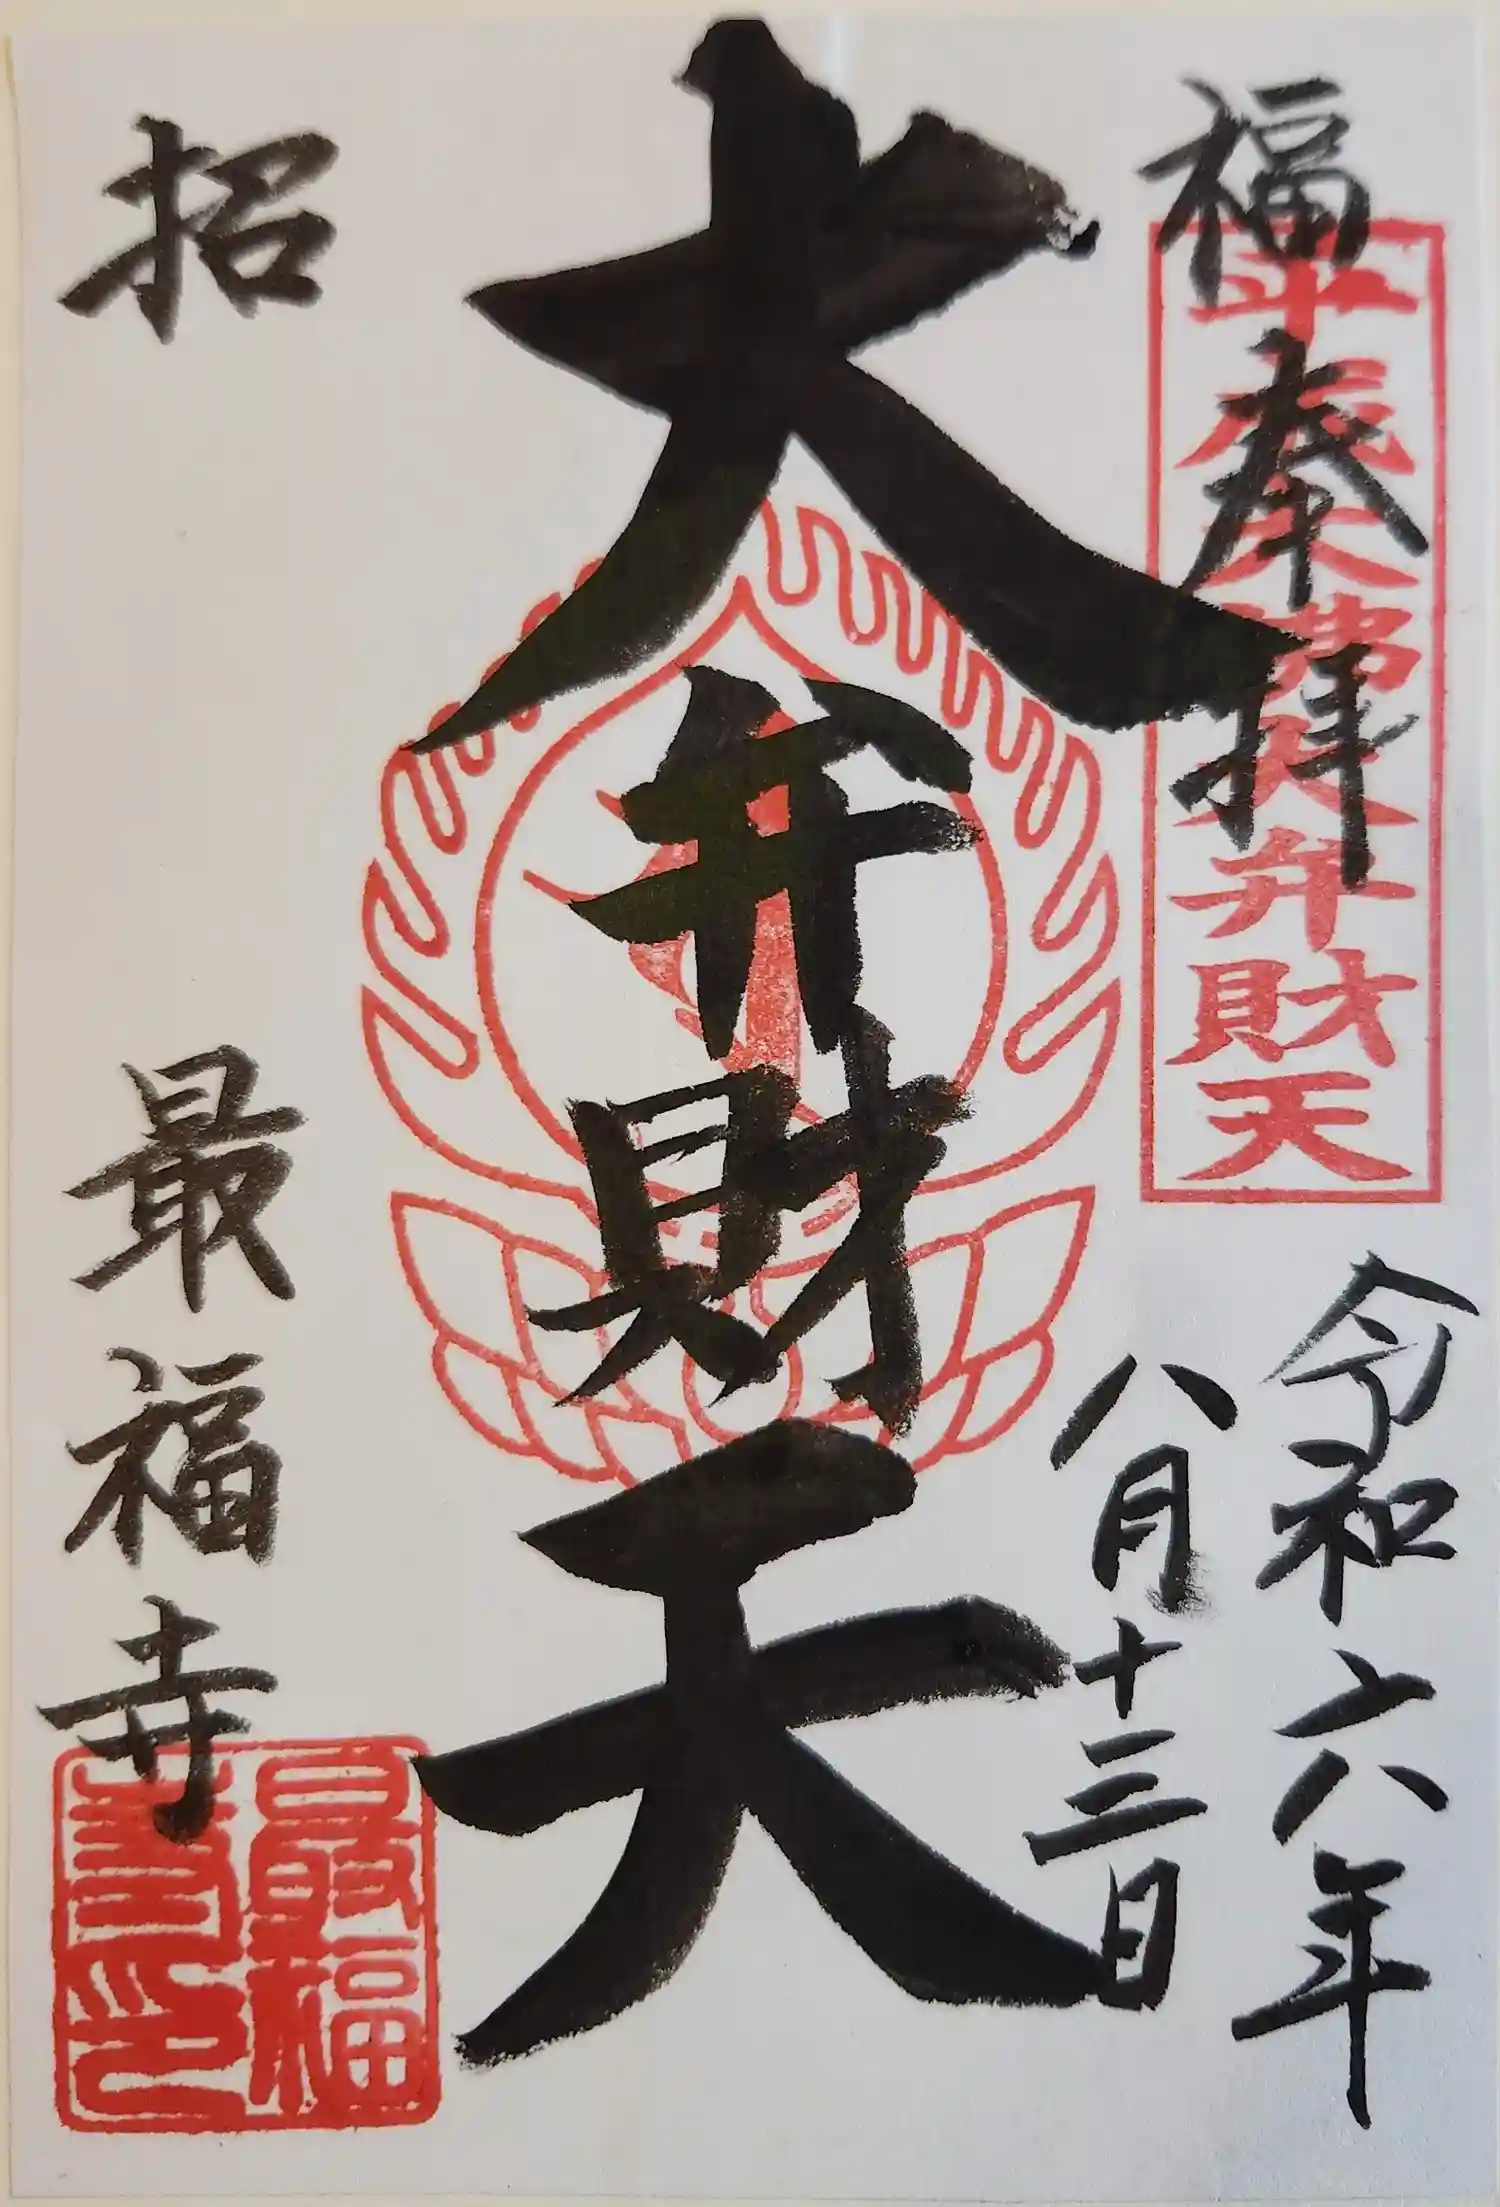 福 奉拝
平成大佛大弁財天
令和六年
八月十三日
大弁財天
招
最福寺
最福寺印